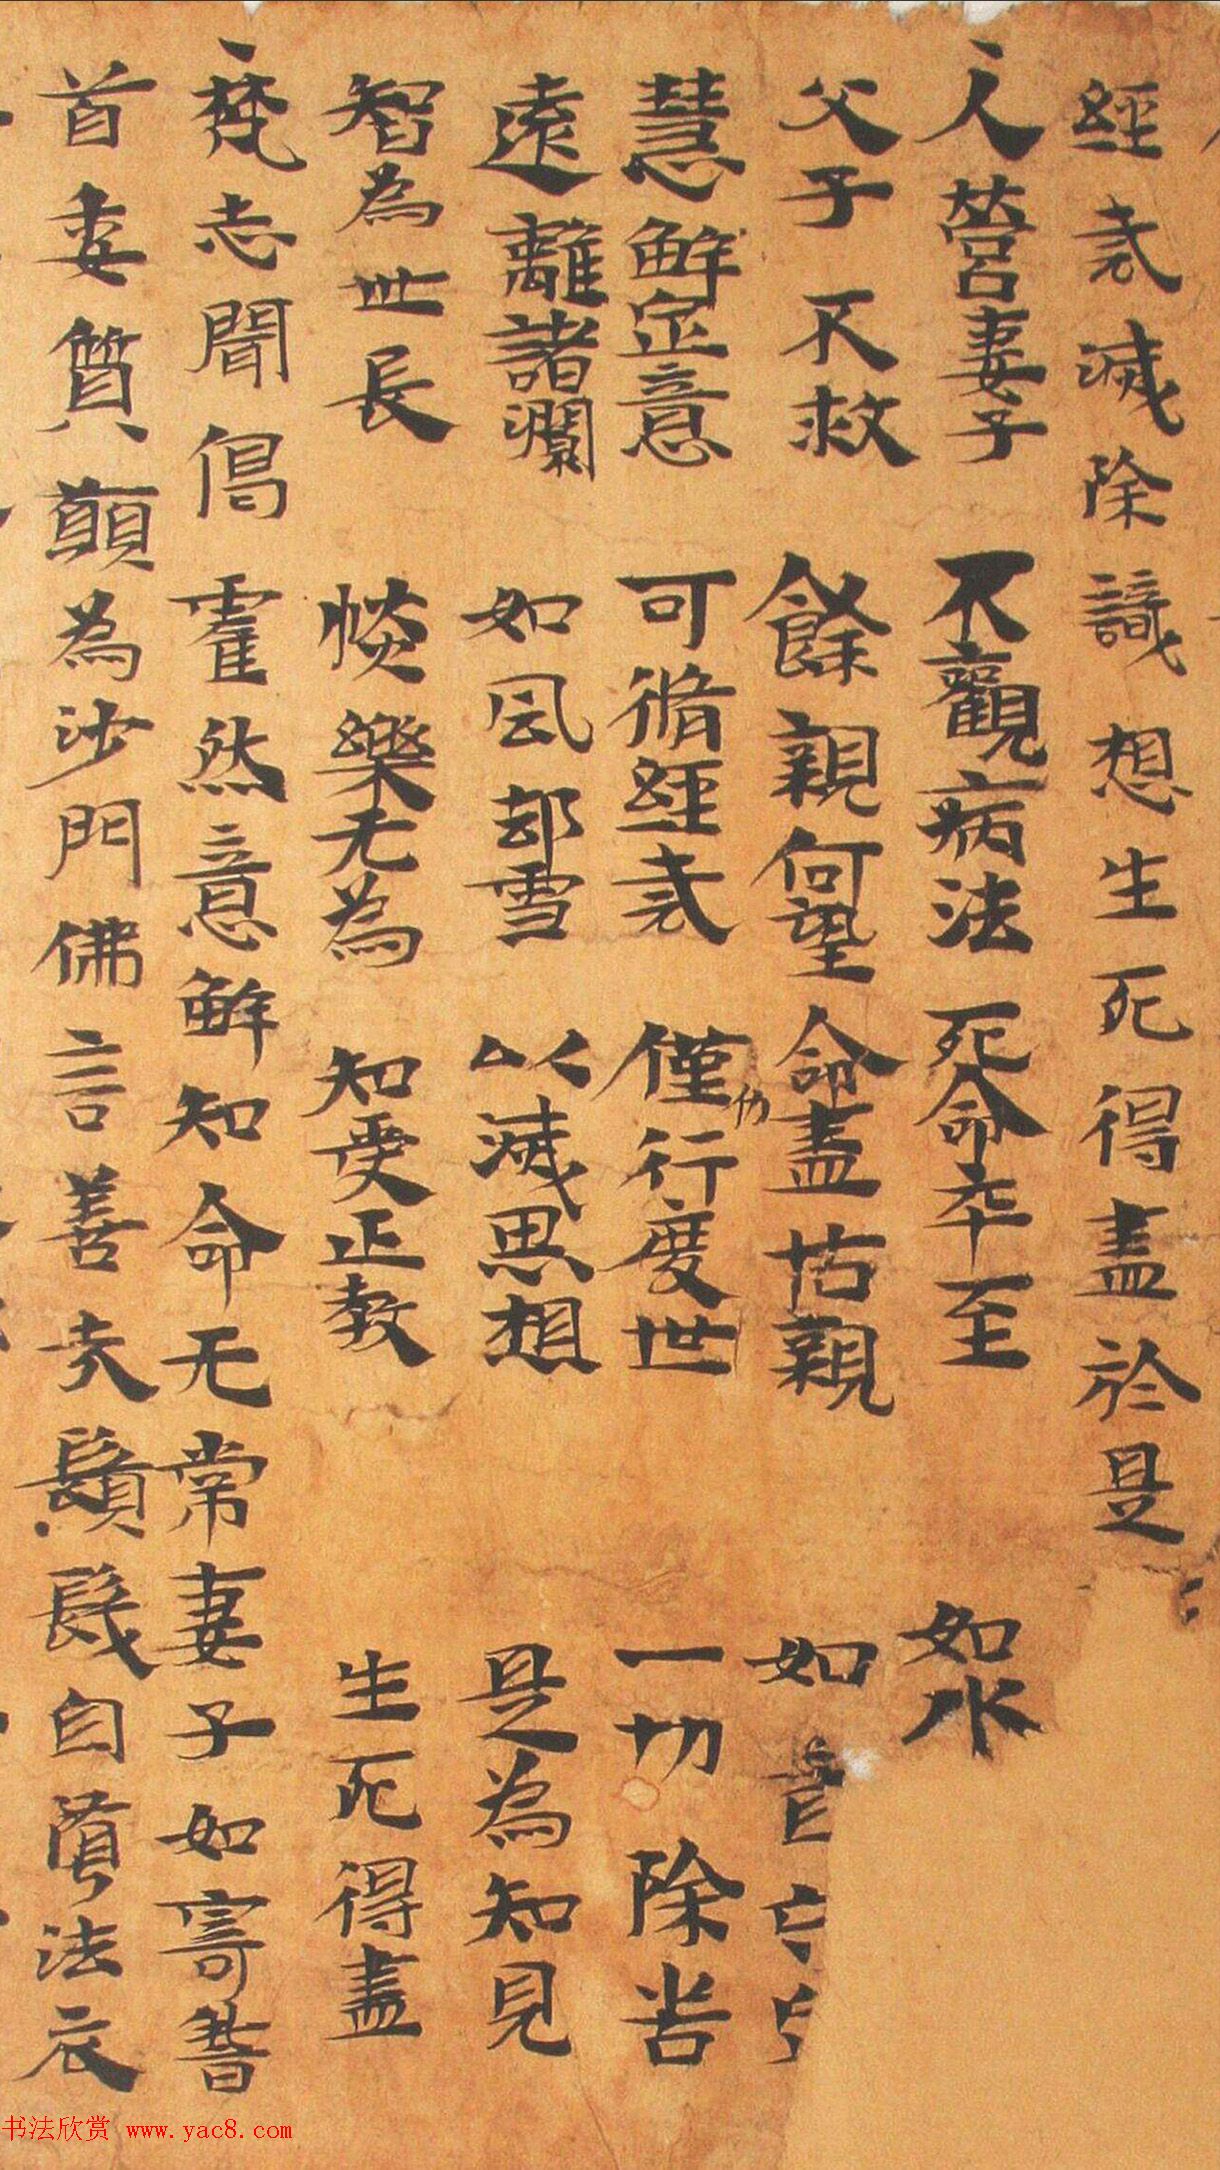 經戒滅除識想生死得盡於是
人營妻子 不觀病法 死命卒至 如水
父子不救 餘親何望 命盡怙親 如盲
慧解定意 可脩經戒 僅仂行度世 一切除苦
遠離諸瀾 如風却雪 以滅思想 是為知見
智為世長 惔樂无為 知受正教 生死得盡
梵志聞偈霍然意解知命无常妻子如寄稽
首委質願為沙門佛言善哉鬚髮自墮法衣
书法欣赏 www.yac8.com